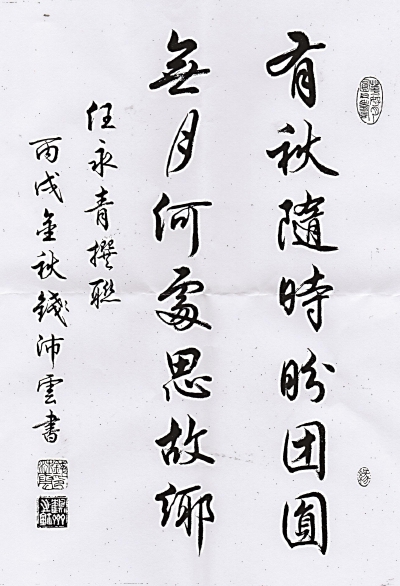 有秋隨時盼团圆
無月何處思故鄉
任永青撰聯
丙戌金秋錢沛雲書